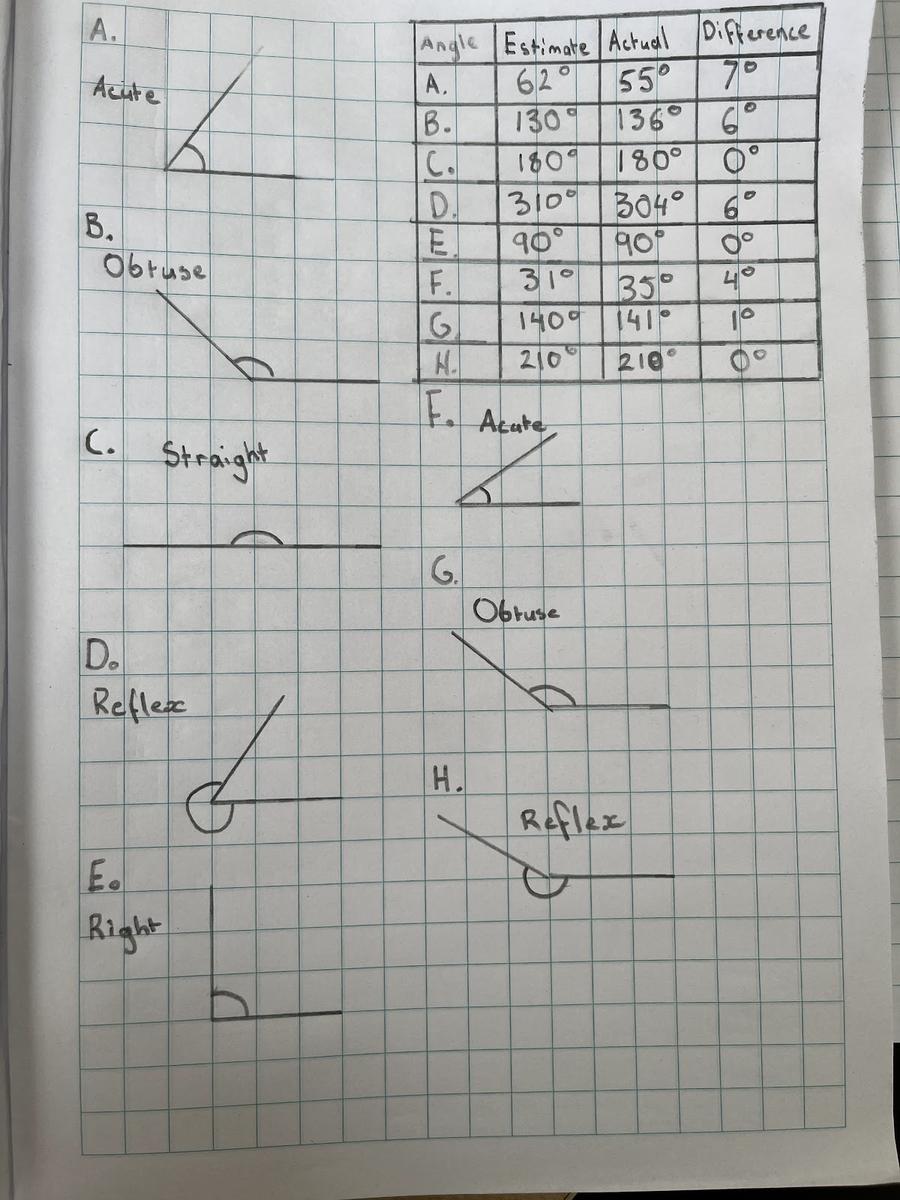 A.
Acute
B.
Obtuse
C. Straight
D.
Reflex
E.
Right
Angle Estimate Actual Difference
A. 62° 55° 7°
B. 130° 136° 6°
C. 180° 180° 0°
D. 310° 304° 6°
E. 90° 90° 0°
F. 31° 35° 4°
G. 140° 141° 1°
H. 210° 210° 0°
F. Acute
G.
Obtuse
H.
Reflex